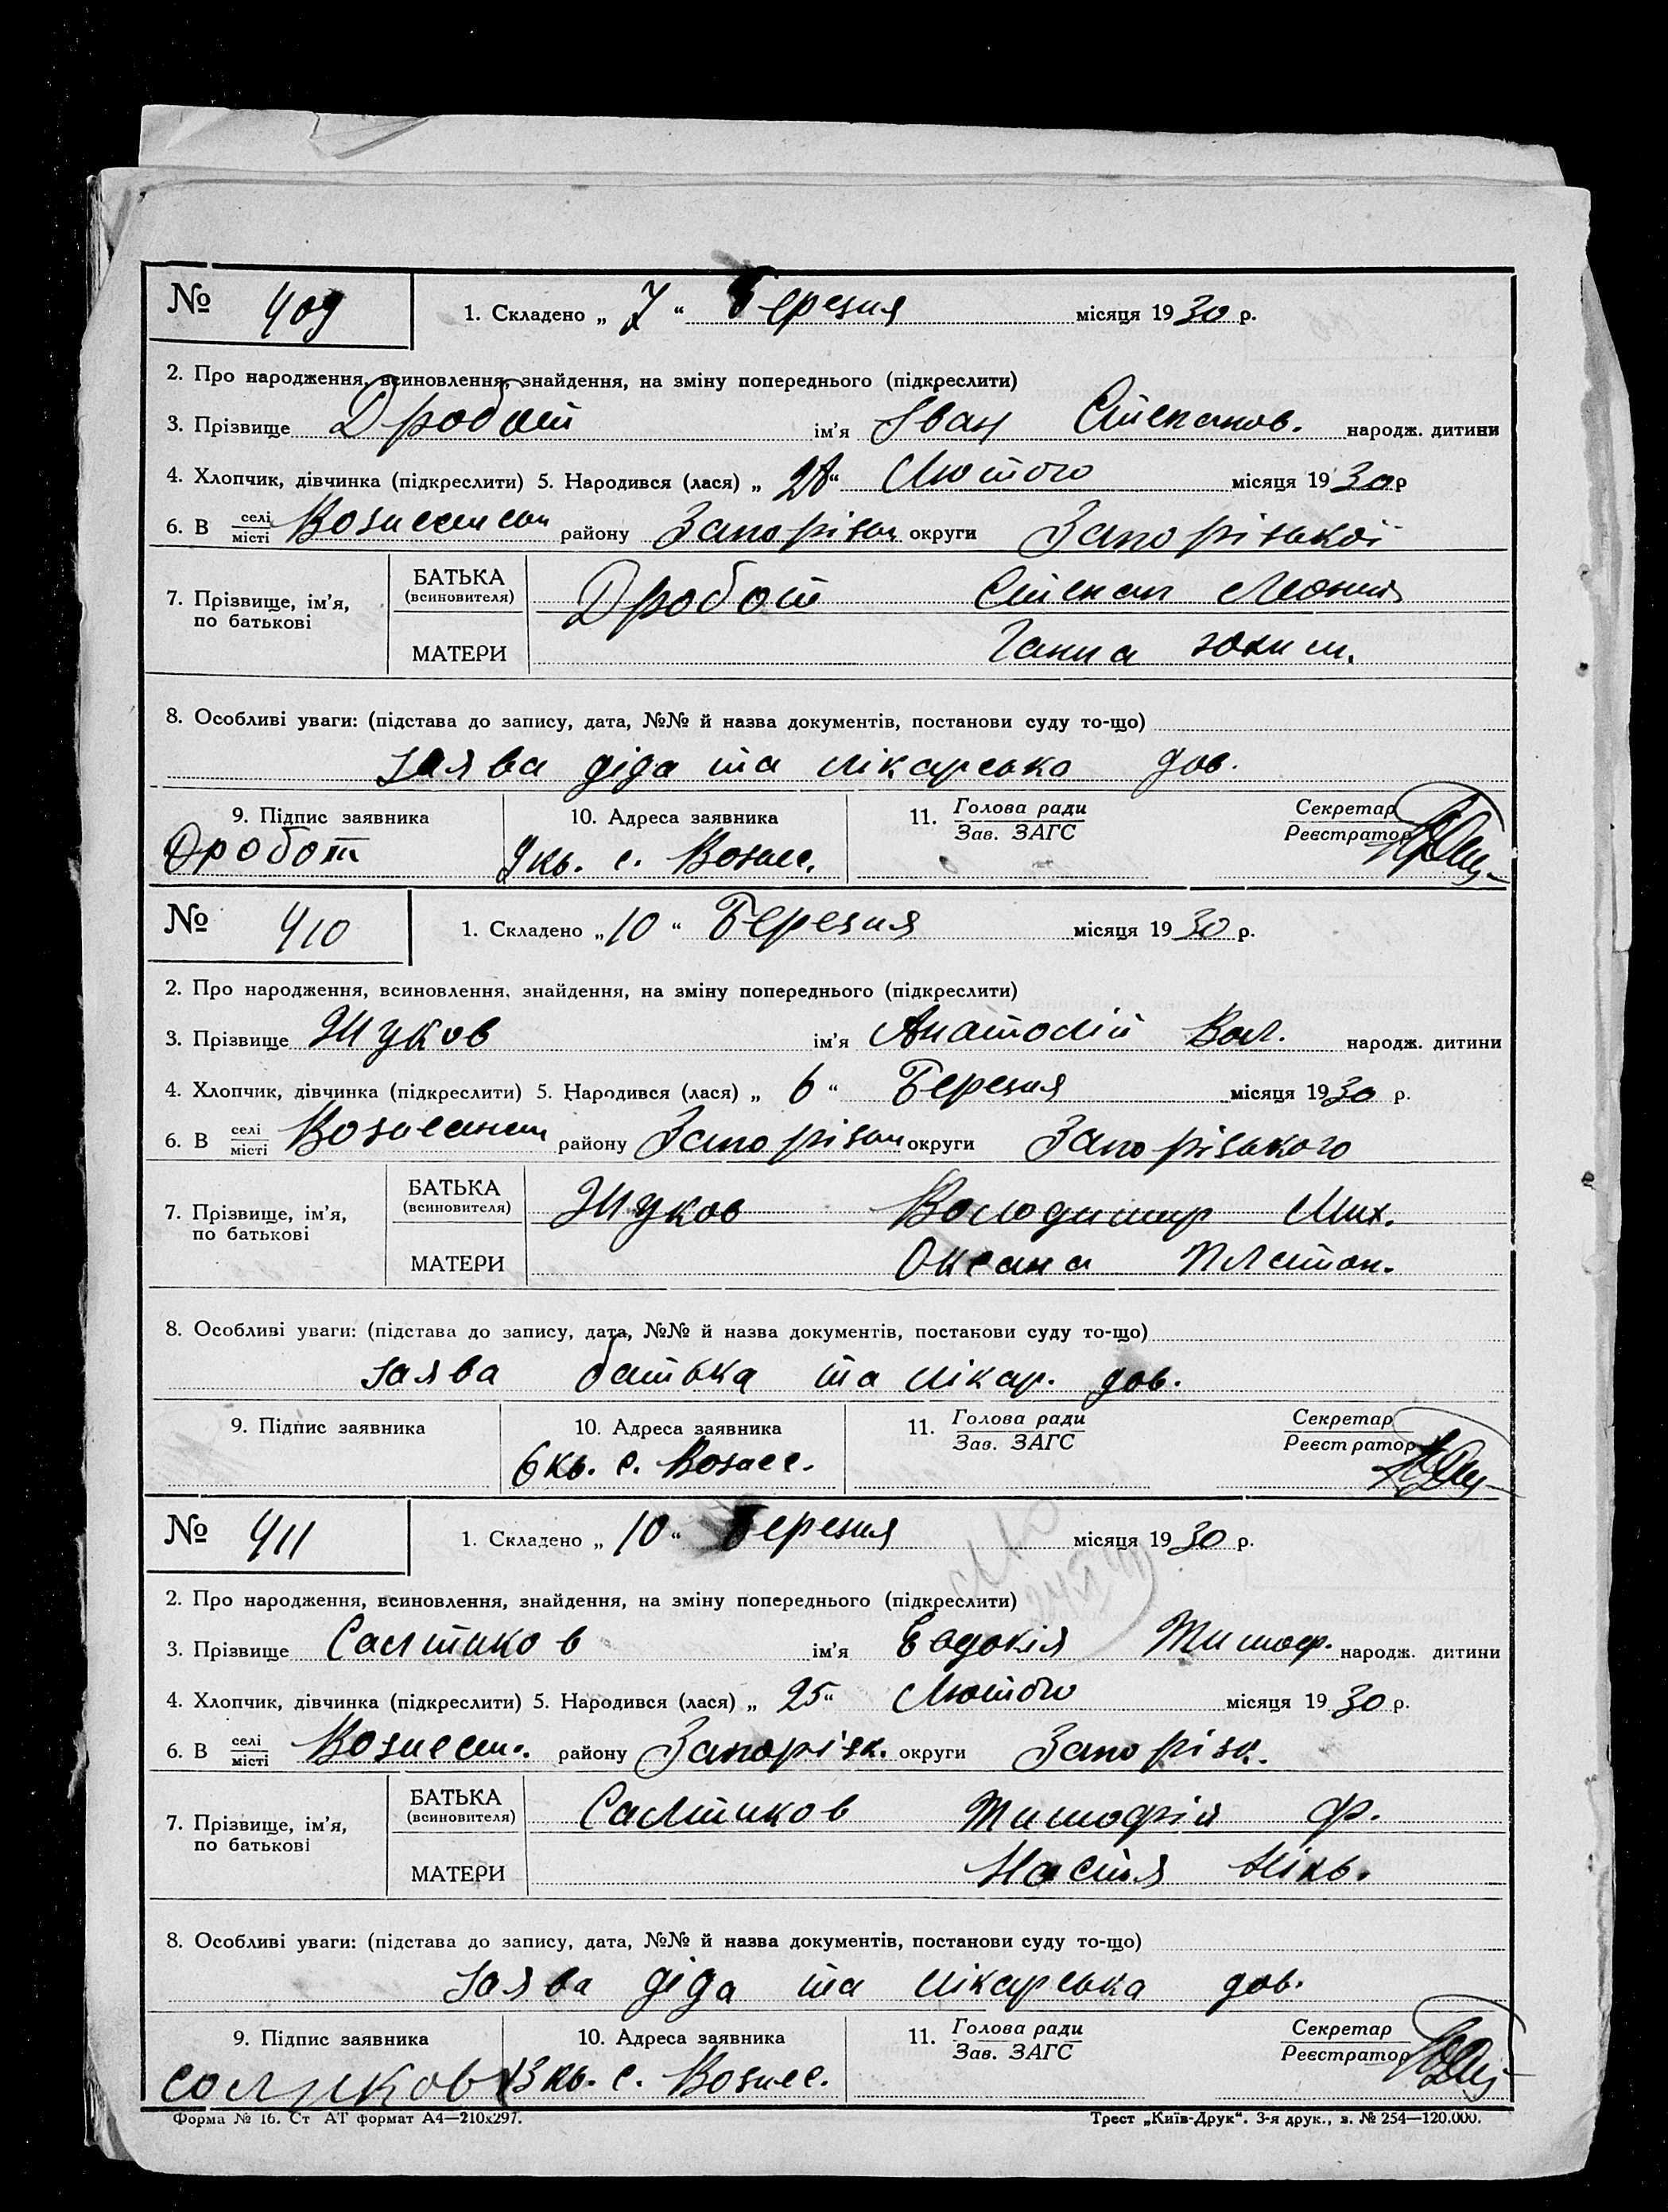 № 409 1. Складено „ 7 “ Березня місяця 1930 р.
2. Про народження, всиновлення, знайдення, на зміну попереднього (підкреслити)
3. Прізвище Дробот ім’я Іван Степанов. народж. дитини
4. Хлопчик, дівчинка (підкреслити) 5. Народився (лася) „ “ Лютого місяця 1930 р
6. В селі місті району округи Запорізької
7. Прізвище, ім’я, по батькові
БАТЬКА (всиновителя) Дробот Степан
МАТЕРИ Ганна
8. Особливі уваги: (підстава до запису, дата, №№ й назва документів, постанови суду то-що)
заява діда та лікарська дов.
9. Підпис заявника 10. Адреса заявника 11. Голова ради Зав. ЗАГС Секретар Реєстратор
Дробот 9 кв. с. Вознес.
№ 410 1. Складено „ 10 “ Березня місяця 1930 р.
2. Про народження, всиновлення, знайдення, на зміну попереднього (підкреслити)
3. Прізвище Жуков ім’я Анатолій Вол. народж. дитини
4. Хлопчик, дівчинка (підкреслити) 5. Народився (лася) „ 6 “ Березня місяця 1930 р.
6. В селі місті району округи Запорізького
7. Прізвище, ім’я, по батькові
БАТЬКА (всиновителя) Жуков Володимир Мих.
МАТЕРИ Оксана Платон.
8. Особливі уваги: (підстава до запису, дата, №№ й назва документів, постанови суду то-що)
заява батька та лікар. дов.
9. Підпис заявника 10. Адреса заявника 11. Голова ради Зав. ЗАГС Секретар Реєстратор
6 кв. с. Вознес.
№ 411 1. Складено „ 10 “ Березня місяця 1930 р.
2. Про народження, всиновлення, знайдення, на зміну попереднього (підкреслити)
3. Прізвище Салтиков ім’я Евдокія Тимоф. народж. дитини
4. Хлопчик, дівчинка (підкреслити) 5. Народився (лася) „ 25 “ Лютого місяця 1930 р.
6. В селі місті Вознесен. району Запорізк. округи Запорізк.
7. Прізвище, ім’я, по батькові
БАТЬКА (всиновителя) Салтиков Тимофій Ф.
МАТЕРИ Настя
8. Особливі уваги: (підстава до запису, дата, №№ й назва документів, постанови суду то-що)
заява діда та лікарська дов.
9. Підпис заявника 10. Адреса заявника 11. Голова ради Зав. ЗАГС Секретар Реєстратор
кв. с. Вознес.
Форма № 16. Ст АТ формат А4—210x297. Трест „Київ-Друк“. 3-я друк., з. № 254—120.000.